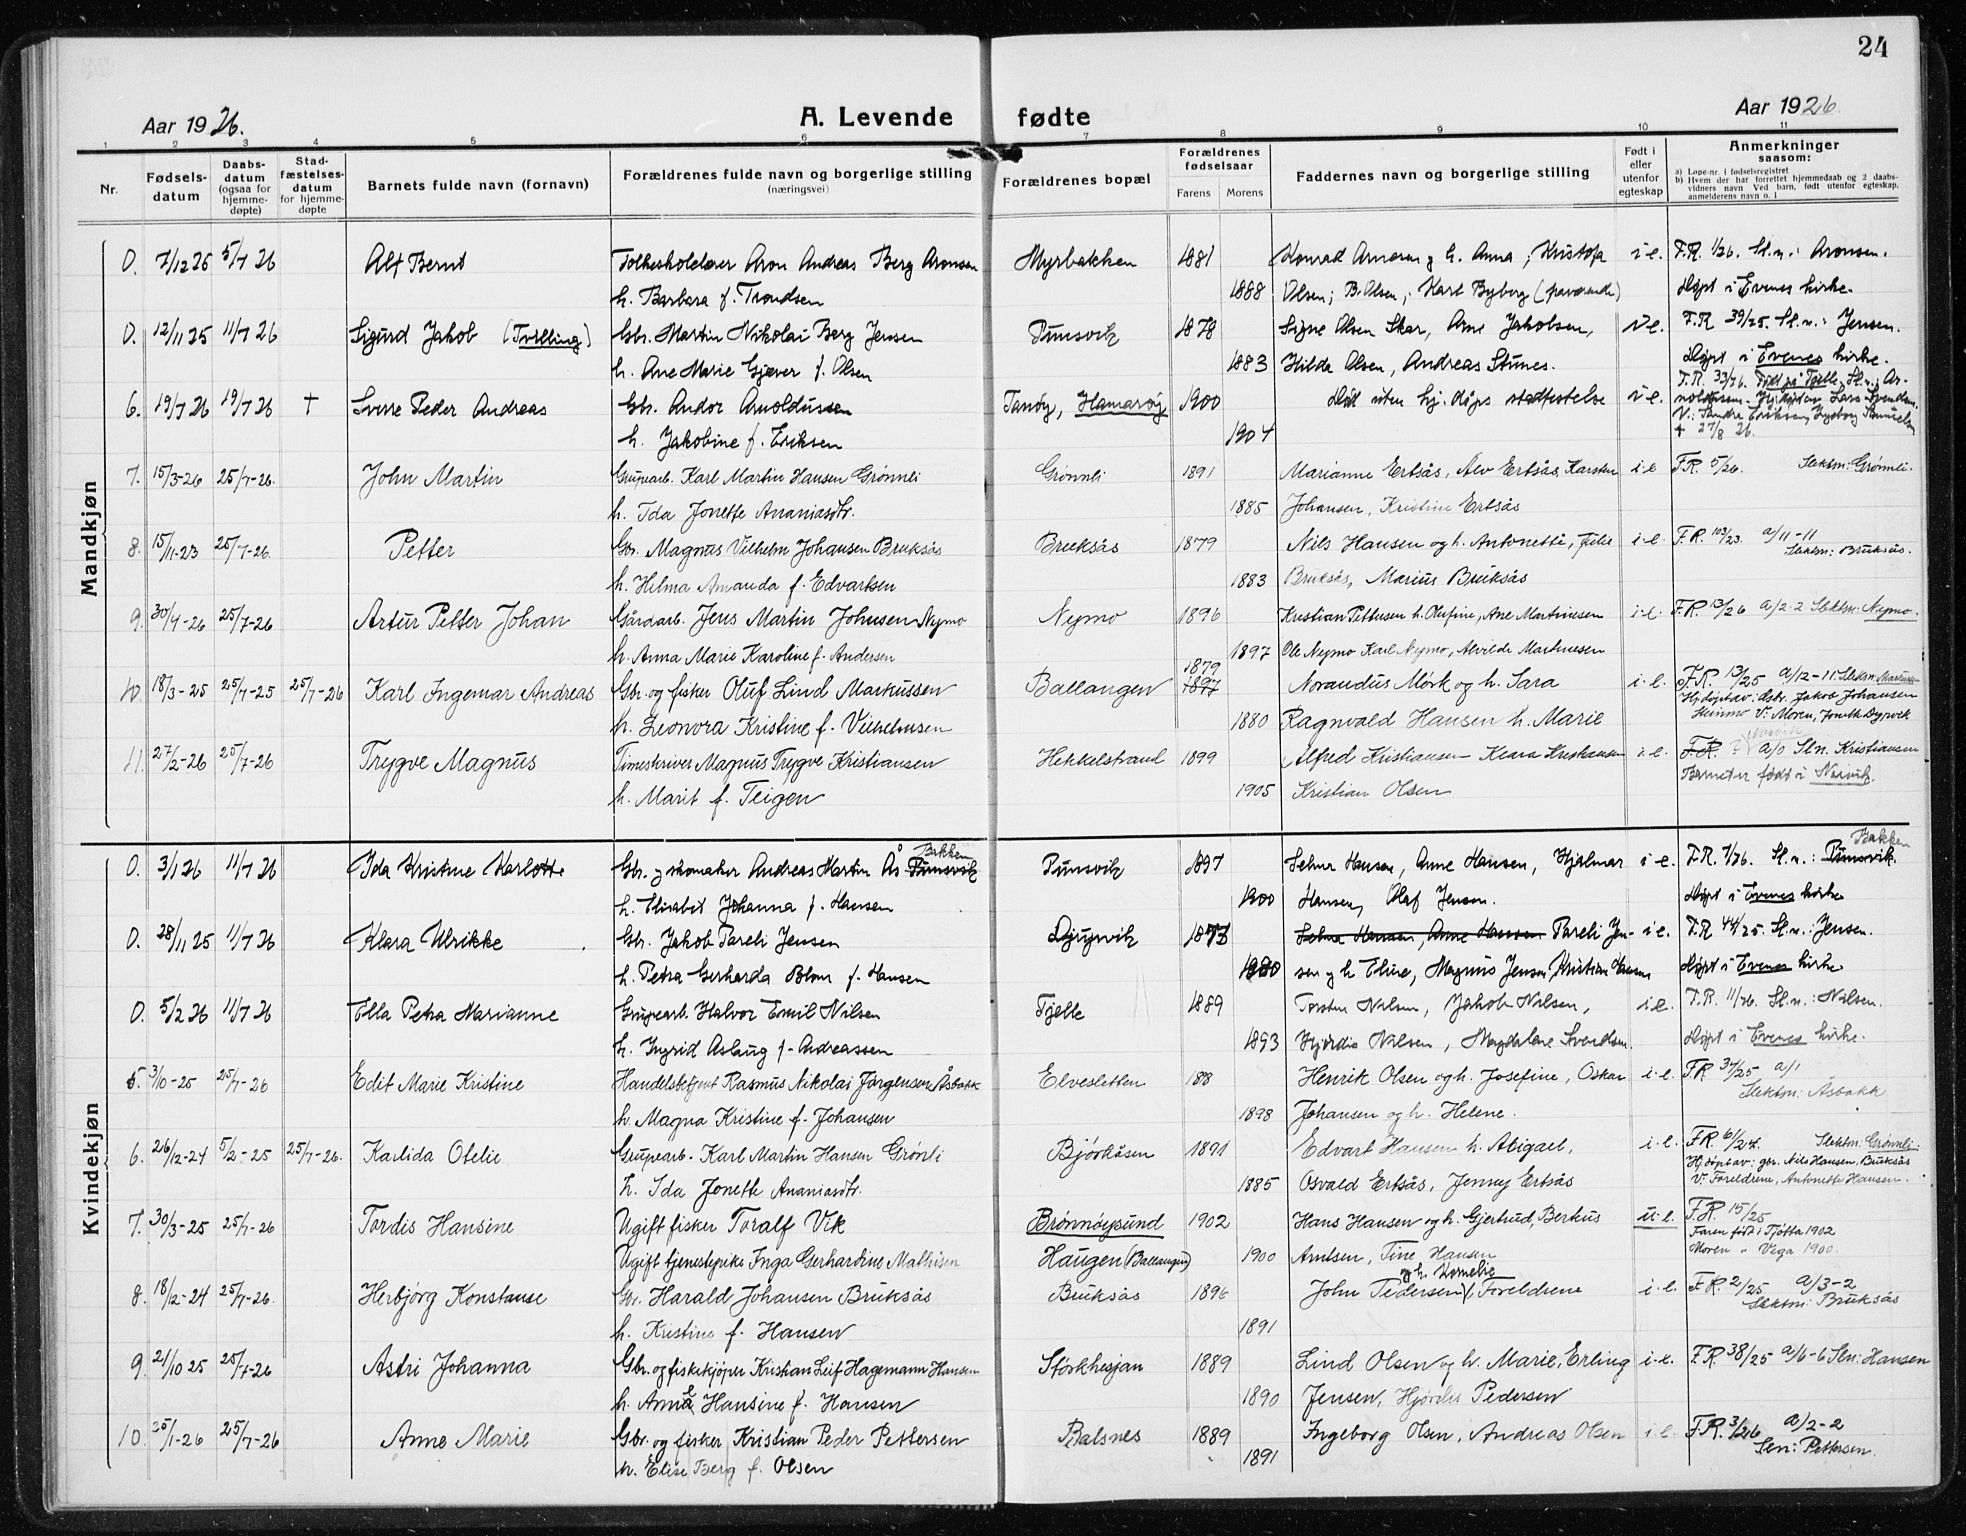 24
Aar 1926.
A. Levende fødte
Aar 1926.
1 2 3 4 5 6 7 8 9 10 11
Nr.
Fødsels-datum
Daabs-datum (ogsaa for hjemme-døpte)
Stad-fæstelses-datum for hjemme-døpte
Barnets fulde navn (fornavn)
Forældrenes fulde navn og borgerlige stilling (næringsvei)
Forældrenes bopæl
Forældrenes fødselsaar
Farens Morens
Faddernes navn og borgerlige stilling
Født i eller utenfor egteskap
Anmerkninger saasom:
a) Løpe-nr. i fødselsregistret
b) Hvem der har forrettet hjemmedaab og 2 daabs-vidners navn Ved barn, født utenfor egteskap, anmelderens navn o. l
Mandkjøn
0. 7/12 25 5/7 26 Alf Bernt Folkeskolelærer Aron Andreas Berg Aronsen Myrbakken 1881 Konrad Arnesen og h. Anna; Kristofa i e. F.R. 1/26. Sl.n.: Aronsen.
h. Barbara f. Trondsen 1888 Olsen; B. Olsen; Karl Byberg Døpt i Evenes kirke.
0. 12/11 25 11/7 26 Sigurd Jakob (Tvilling) Gbr. Martin Nikolai Berg Jensen Tunsvik 1878 Signe Olsen Skar, Arne Jakobsen, i e. F.R 39/25. Sl.n.: Jensen.
h. Ane Marie Gjæver f. Olsen 1883 Hilda Olsen, Andreas Stunes. Døpt i Evenes kirke.
6. 19/7 26 19/7 26 † Sverre Peder Andreas Gbr. Andor Arnoldussen Tanøy, Hamarøy 1900 Død uten hj. døps stadfestelse i e. F.R. 33/26. Født på Fjelle. Sl.n.: Ar-
noldussen. Hj.døpt av Lars Svendsen.
h. Jakobine f. Eriksen 1904 V: Sandra Eriksen, Ingeborg Samuelsen
† 27/8 26.
7. 15/3-26 25/7-26. John Martin Grupearb. Karl Martin Hansen Grønnli Grønnli 1891 Marianne Ertsås, Alv Ertsås, Karsten i e F.R. 5/26. Slektsn: Grønnli.
h. Ida Jonette Ananiasdtr. 1885 Johansen, Kristine Ertsås
8. 15/11-23 25/7-26. Petter Gbr. Magnus Vilhelm Johansen Bruksås Bruksås 1879 Nils Hansen og h. Antonette, i e. F.R. 103/23. a/11-11
Slektsn: Bruksås.
h. Helma Amanda f. Edvartsen 1883 Bruksås, Marius Bruksås
9. 30/4-26 25/7-26 Artur Petter Johan Gårdarb. Jens Martin Johnsen Nymo Nymo 1896 Kristian Pettersen h. Olufine, Ane Martinesen i e. F.R. 13/26 a/2-2 Slektsn: Nymo.
h. Anna Marie Karoline f. Andersen 1897 Ole Nymo Karl Nymo, Alvilde Martinesen
10. 18/3-25 25/7-25 25/7-26 Karl Ingemar Andreas Gbr. og fisker Oluf Lind Markussen Ballangen 1879 1877 Norandus Mörk og h. Sara i e. F.R. 13/25 a/12-11: Slektsn: Markussen
Hj.døpt av: Gbr. Jakob Johansen
h. Leonora Kristine f. Vilhelmsen 1880 Ragnvald Hansen h. Marie Steinmo V: Moren, Joneth Dyrvik
11. 27/2-26 25/7-26 Trygve Magnus Timeskriver Magnus Trygve Kristiansen Hekkelstrand 1899 Alfred Kristiansen Klara Kristiansen i e. F.R. Narvik a/0 Sln. Kristiansen
h. Marit f. Teigen 1905 Kristian Olsen Barnet er født i Narvik.
Kvindekjøn
0. 3/1 26 11/7 26 Ida Kristine Karlotte Gbr. og skomaker Andreas Martin Ås Tunsvik Bakken Tunsvik 1897 Selma Hansen, Anne Hansen, Hjalmar i e. F.R. 7/26. Sl.n.: Tunsvik. Bakken
h. Elisabet Johanna f. Hansen 1900 Hansen, Olaf Jensen. Døpt i Evenes kirke
0. 28/11 25 11/7 26 Klara Ulrikke Gbr. Jakob Pareli Jensen Djupvik 1873 Selma Hansen, Anne Hansen Pareli Jen- i e. F.R 44/25. Sl.n.: Jensen.
h. Petra Gerharda Blom f. Hansen 1880 sen og h. Eline, Magnus Jensen, Kristian Hansen Døpt i Evenes kirke
0. 5/2 26 11/7 26 Ella Petra Marianne Grupearb. Halvor Emil Nilsen Fjelle 1889 Torsten Nilsen, Jakob Nilsen, i e. F.R. 11/26. Sl.n.: Nilsen.
h. Ingrid Aslaug f. Andreassen 1893 Hjørdis Nilsen, Magdalene Svendsen Døpt i Evenes kirke.
5. 3/10-25 25/7-26 Edit Marie Kristine Handelsbetjent Rasmus Nikolai Jørgensen Åsbakk Elvesletten 188 Henrik Olsen og h. Josefine, Oskar i e. F.R. 34/25 a/1
Slektsn: Åsbakk
h. Magna Kristine f. Johansen 1898 Johansen og h. Helene.
6. 26/12-24 5/2-25 25/7-26. Karlida Otelie Grupearb. Karl Martin Hansen Grönli Bjørkåsen 1891 Edvart Hansen h. Abigael, i e. F.R. 61/24. Slektsn: Grønnli.
Hj.døpt av: gbr. Nils Hansen, Bruksås
h. Ida Jonette Ananiasdtr. 1885 Osvald Ertsås, Jenny Ertsås V: Foreldrene, Antonette Hansen.
7. 30/3-25 25/7-26 Tordis Hansine Ugift fisker Toralf Vik Brønnøysund 1902 Hans Hansen og h. Gjertrud, Berkus u. e. F.R. 15/25
Faren född i Tjøtta 1902
Ugift tjenestepike Inga Gerhardine Mathisen Haugen (Ballangen) 1900 Arntsen, Tine Hansen Moren „ Vega 1900.
8. 18/12-24 25/7-26. Herbjörg Konstanse Gbr. Harald Johansen Bruksås Bruksås 1896 John Pedersen og h. Kornelie Foreldrene i e. F.R. 2/25 a/3-2
Slektsn: Bruksås
h. Kristine f. Hansen 1891
9. 21/10 25 25/7-26 Astri Johanna Gbr. og fiskekjöper Kristian Leif Hagemann Hansen Störkhesjan 1889 Lind Olsen og h. Marie, Erling i e. F.R. 38/25 a/6-6 Sln: Hansen
h. Anna Hansine f. Hansen 1890 Jensen, Hjørdis Pedersen
10. 25/1-26 25/7-26 Anne Marie Gbr. og fisker Kristian Peder Pettersen Balsnes 1889 Ingeborg Olsen, Andreas Olsen i e. F.R. 3/26 a/2-2
Sln: Pettersen.
h. Elise Berg f. Olsen 1891